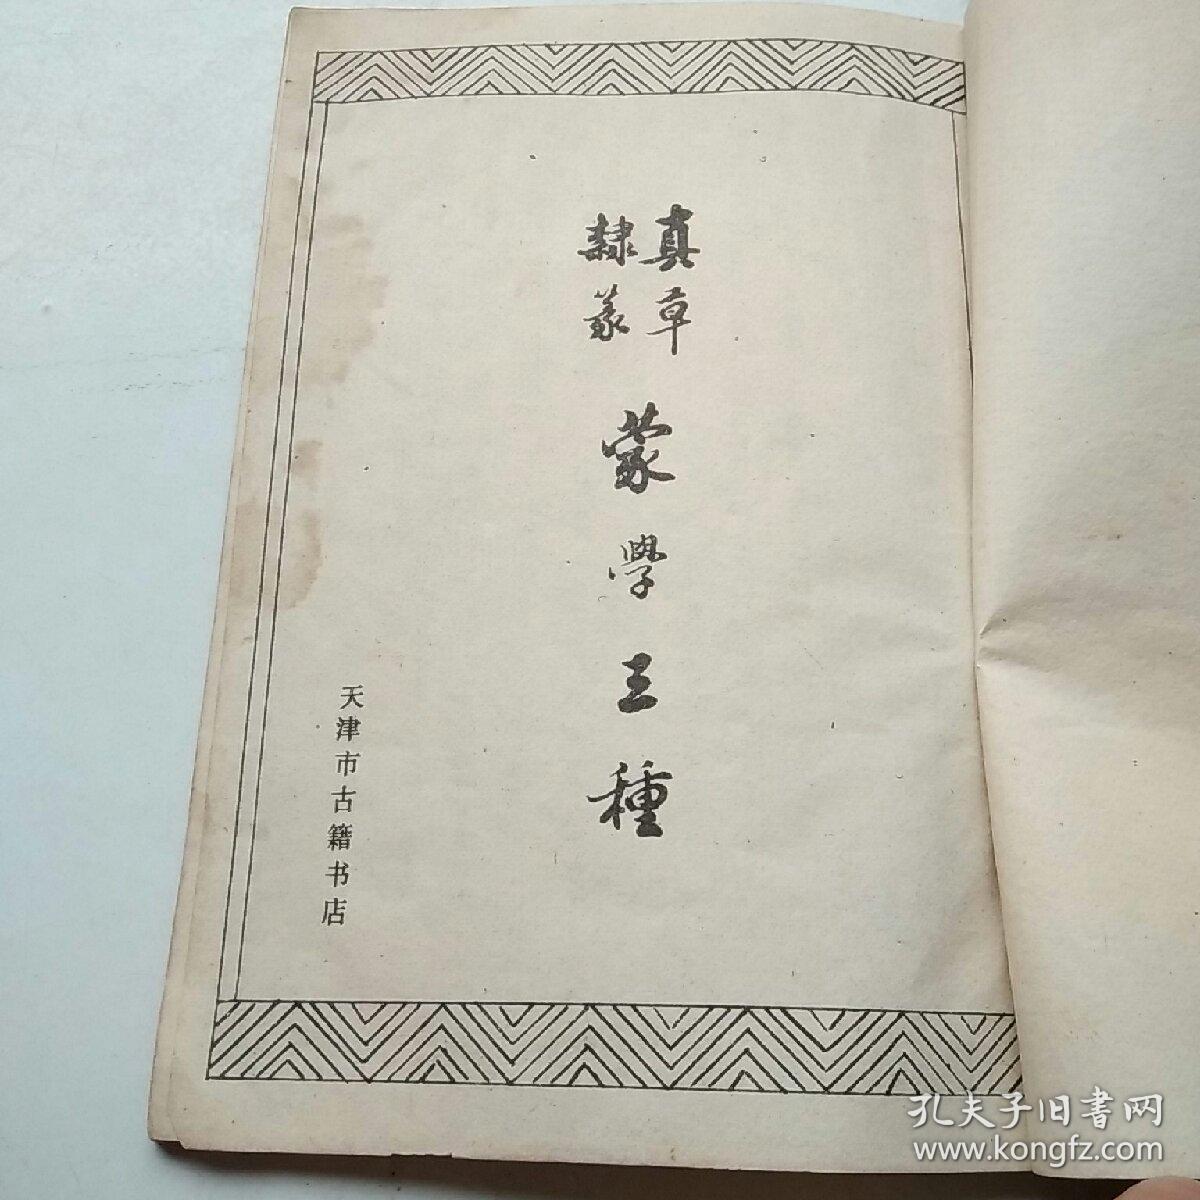 真草
隸篆
蒙學三種
天津市古籍书店
孔夫子旧書网
www.kongfz.com